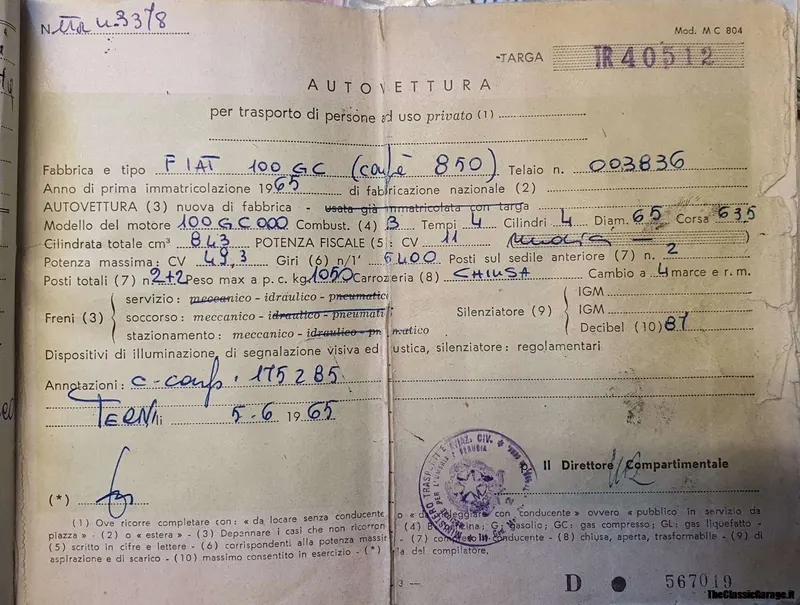 N. Mod. M C 804
TARGA TR 40512
AUTOVETTURA
per trasporto di persone ad uso privato (1)
Fabbrica e tipo FIAT 100 GC (coupè 850) Telaio n. 003836
Anno di prima immatricolazione 1965 di fabbricazione nazionale (2)
AUTOVETTURA (3) nuova di fabbrica - usata già immatricolata con targa
Modello del motore 100GC000 Combust. (4) B Tempi 4 Cilindri 4 Diam. 65 Corsa 63,5
Cilindrata totale cm³ 843 POTENZA FISCALE (5: CV 11 )
Potenza massima: CV 49,3 Giri (6) n/1' 6400 Posti sul sedile anteriore (7) n. 2
Posti totali (7) n. 2+2 Peso max a p. c. kg. 1050 Carrozeria (8) CHIUSA Cambio a 4 marce e r. m.
Freni (3)
servizio: meccanico - idraulico - pneumatico
soccorso: meccanico - idraulico - pneumati
stazionamento: meccanico - idraulico - pn matico
Silenziatore (9)
IGM
IGM
Decibel (10) 87
Dispositivi di illuminazione, di segnalazione visiva ed ustica, silenziatore: regolamentari
Annotazioni: C-conf. 175285
TERNI li 5-6 1965
Il Direttore Compartimentale
(*)
(1) Ove ricorre completare con: « da locare senza conducente » o « da noleggiare con conducente » ovvero « pubblico in servizio da
piazza » - (2) o « estera » - (3) Depennare i casi che non ricorron (4) B: benzina; G: gasolio; GC: gas compresso; GL: gas liquefatto -
(5) scritto in cifre e lettere - (6) corrispondenti alla potenza massim - (7) compreso il conducente - (8) chiusa, aperta, trasformabile - (9) di
aspirazione e di scarico - (10) massimo consentito in esercizio - (*) la del compilatore.
3 —
D ● 567019
TheClassicGarage.it